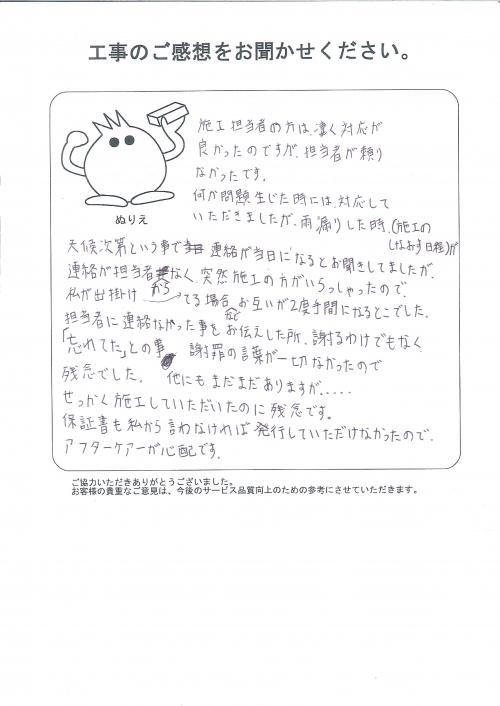 工事のご感想をお聞かせください。
施工担当者の方は、凄く対応が
良かったのですが、担当者が頼り
なかったです。
何か問題生じた時には、対応して
いただきましたが、雨漏りした時、(施工の
しなおす日程)が
ぬりえ
天候次第という事で 連絡が当日になるとお聞きしてましたが、
連絡が担当者からなく、突然施工の方がいらっしゃったので、
私が出掛けてる場合、お互いが2度手間になるとこでした。
担当者に連絡なかった事などをお伝えした所、謝るわけでもなく
「忘れてた」との事 謝罪の言葉が一切なかったので
残念でした。 他にもまだまだありますが.....
せっかく施工していただいたのに残念です。
保証書も私から言わなければ発行していただけなかったので、
アフターケアーが心配です。
ご協力いただきありがとうございました。
お客様の貴重なご意見は、今後のサービス品質向上のための参考にさせていただきます。